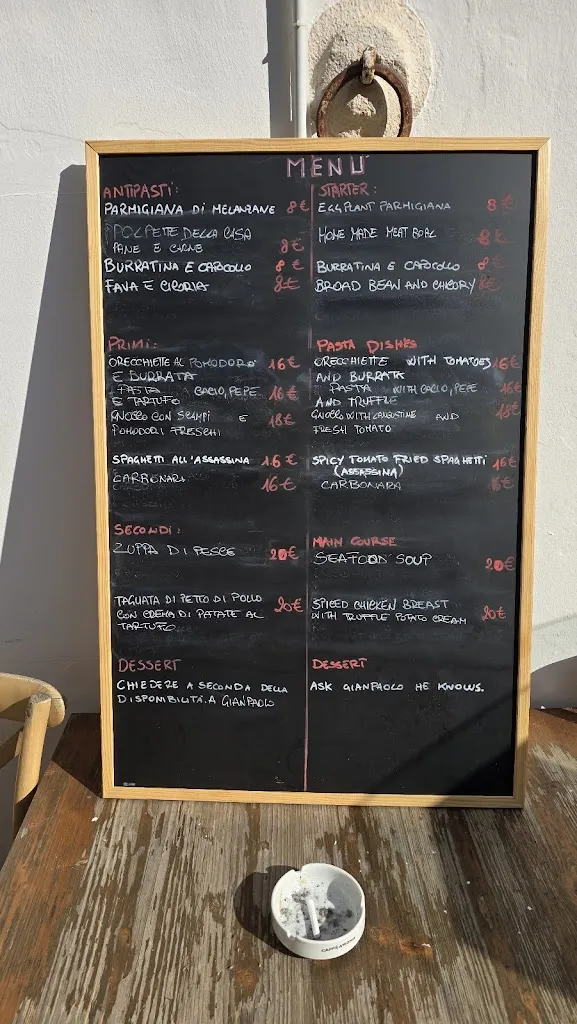 MENU'
ANTIPASTI:
PARMIGIANA DI MELANZANE 8€
POLPETTE DELLA CASA
PANE E CARNE 8€
BURRATINA E CAPOCOLLO 8€
FAVA E CICORIA 8€
PRIMI:
ORECCHIETTE AL POMODORO 16€
E BURRATA
PASTA CACIO, PEPE 16€
E TARTUFO
GNOCCO CON SCAMPI E 18€
POMODORI FRESCHI
SPAGHETTI ALL'ASSASSINA 16€
CARBONARA 16€
SECONDI:
ZUPPA DI PESCE 20€
TAGLIATA DI PETTO DI POLLO 20€
CON CREMA DI PATATE AL
TARTUFO
DESSERT
CHIEDERE A SECONDA DELLA
DISPONIBILITÀ. A GIANPAOLO
STARTER:
EGGPLANT PARMIGIANA 8€
HOME MADE MEAT BOAL 8€
BURRATINA E CAPOCOLLO 8€
BROAD BEAN AND CHICORY 8€
PASTA DISHES
ORECCHIETTE WITH TOMATOES 16€
AND BURRATA
PASTA WITH CACIO, PEPE 16€
AND TRUFFLE
GNOCCO WITH LANGUSTINE AND 18€
FRESH TOMATO
SPICY TOMATO FRIED SPAGHETTI 16€
(ASSASSINA)
CARBONARA 16€
MAIN COURSE
SEAFOOD SOUP 20€
SPICED CHICKEN BREAST 20€
WITH TRUFFLE POTATO CREAM
DESSERT
ASK GIANPAOLO HE KNOWS.